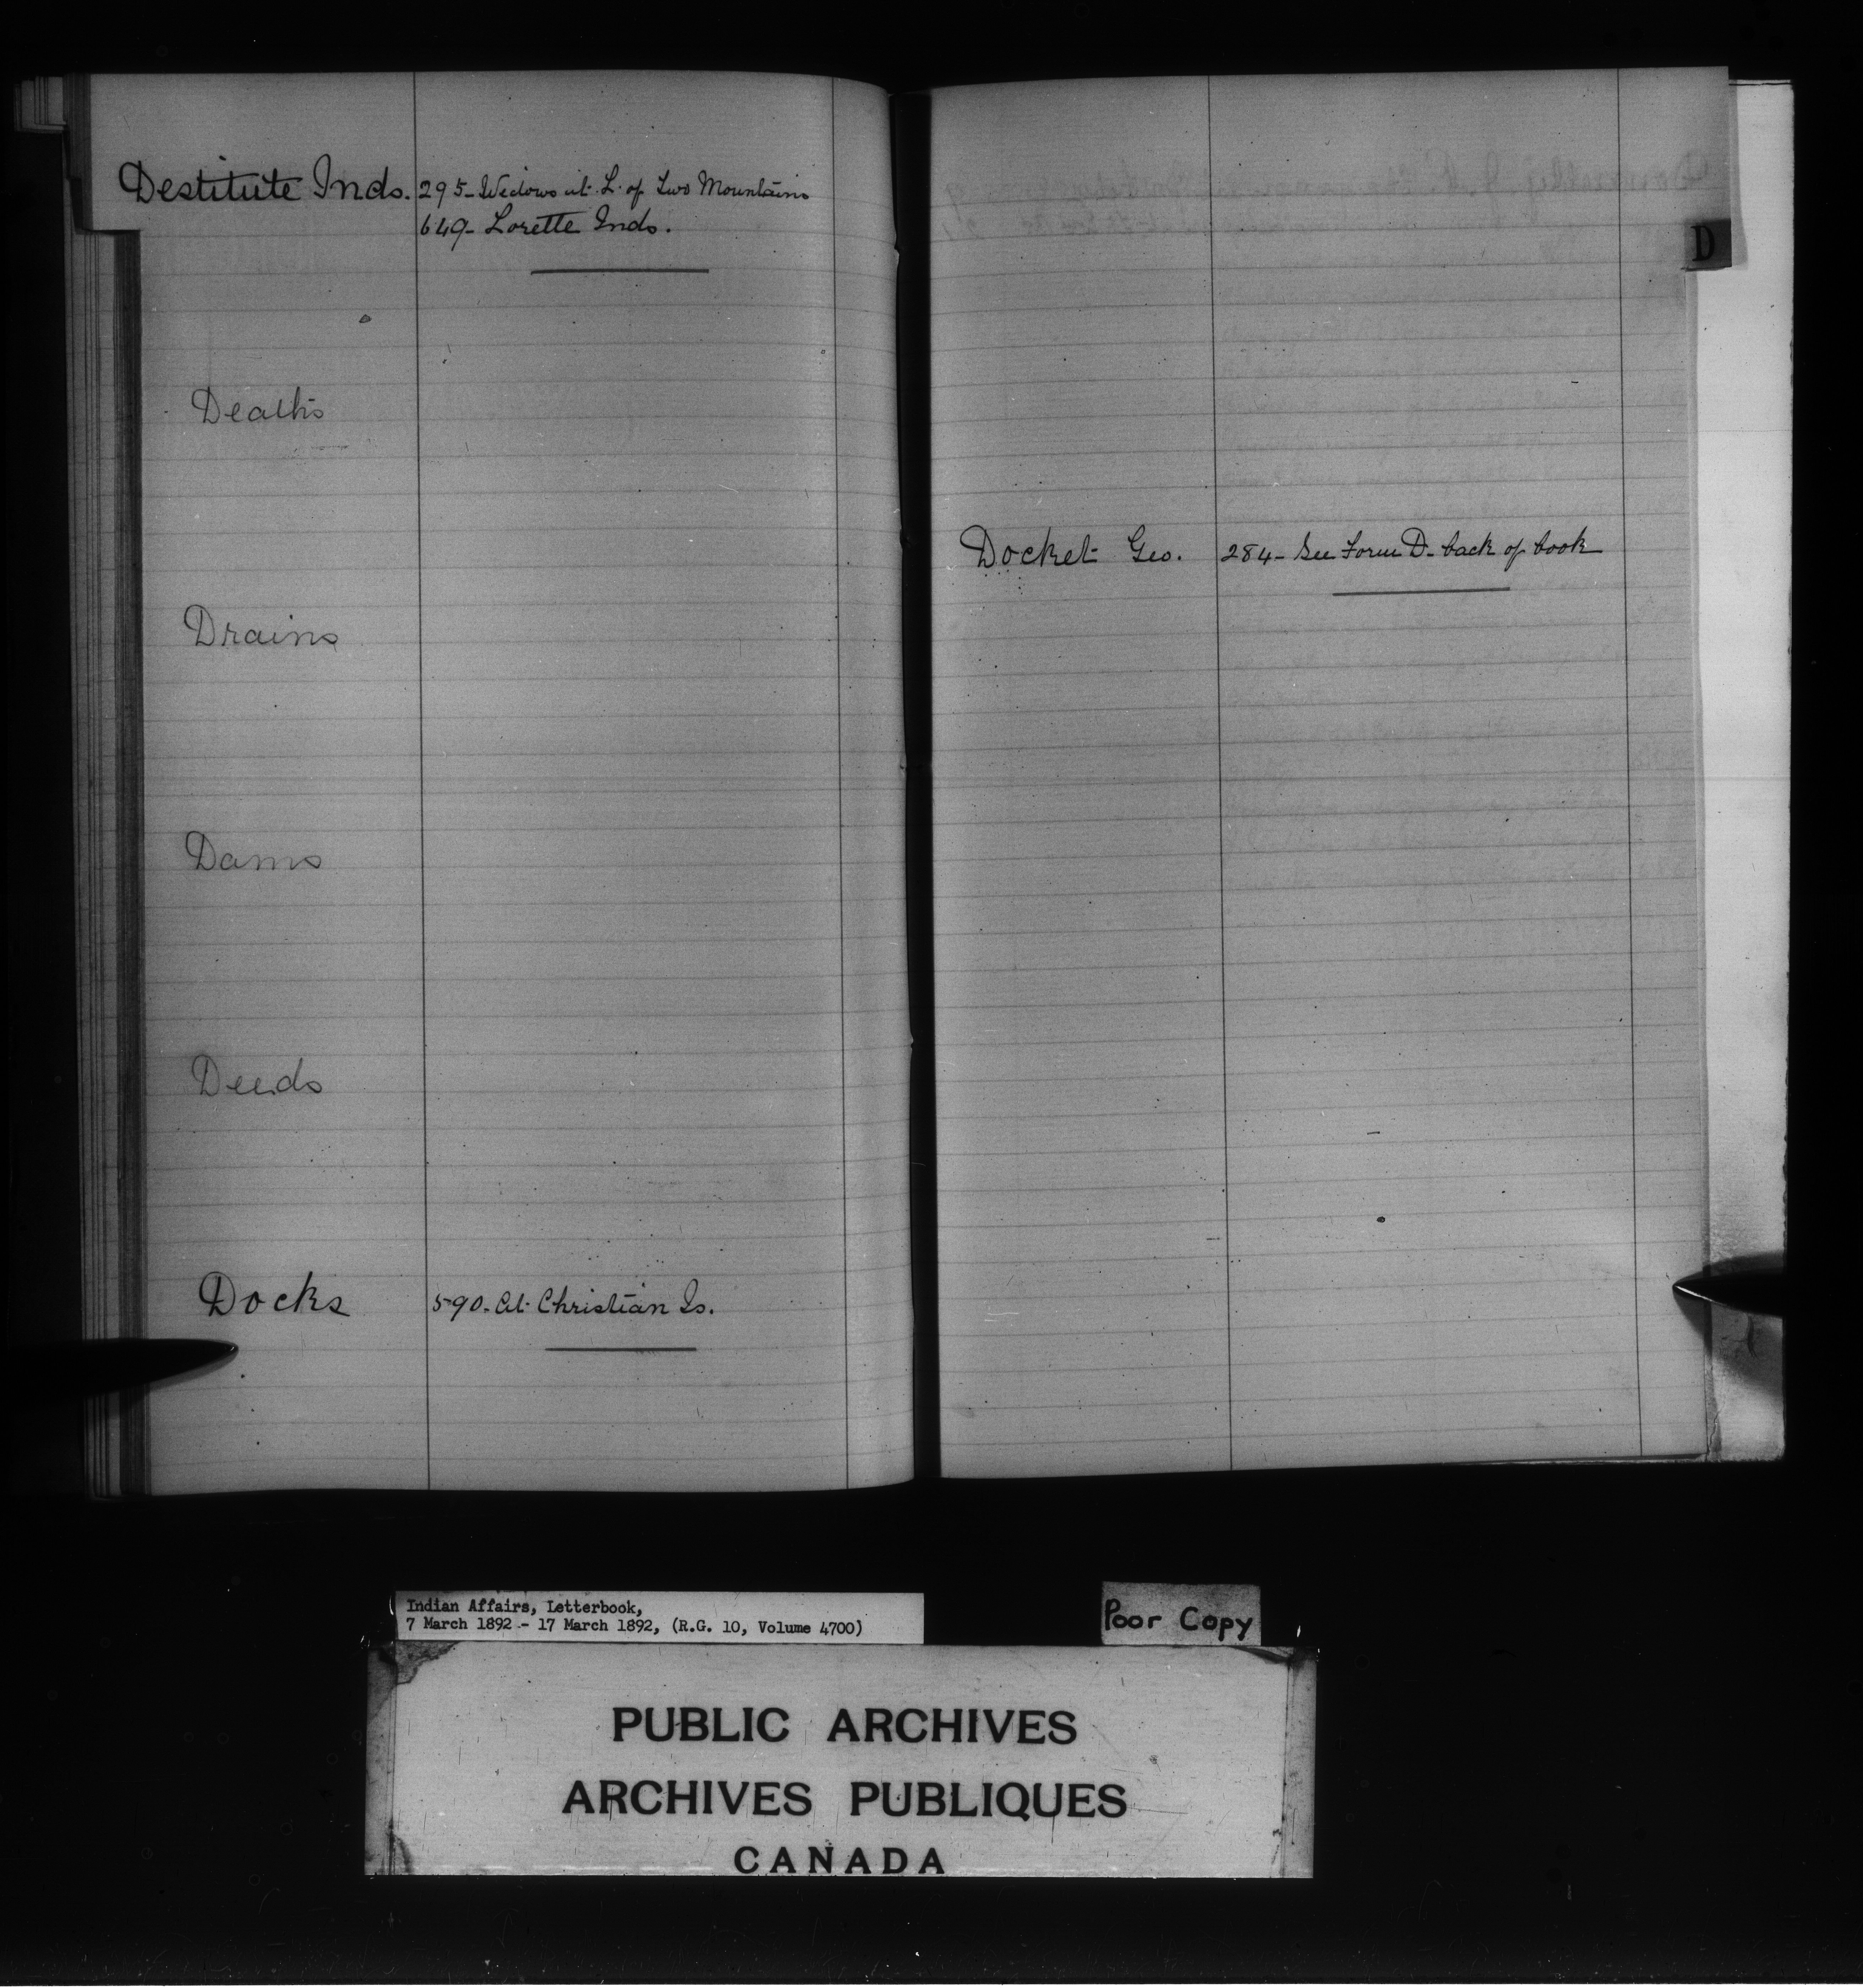 Destitute Inds. 295- Widows at L. of Two Mountains
649- Lorette Inds.
Deaths
Drains
Dams
Deeds
Docks 590- At Christian Is.
D
Docket Geo. 284- See Form D- back of book
Indian Affairs, Letterbook,
7 March 1892 - 17 March 1892, (R.G. 10, Volume 4700)
Poor Copy
PUBLIC ARCHIVES
ARCHIVES PUBLIQUES
CANADA